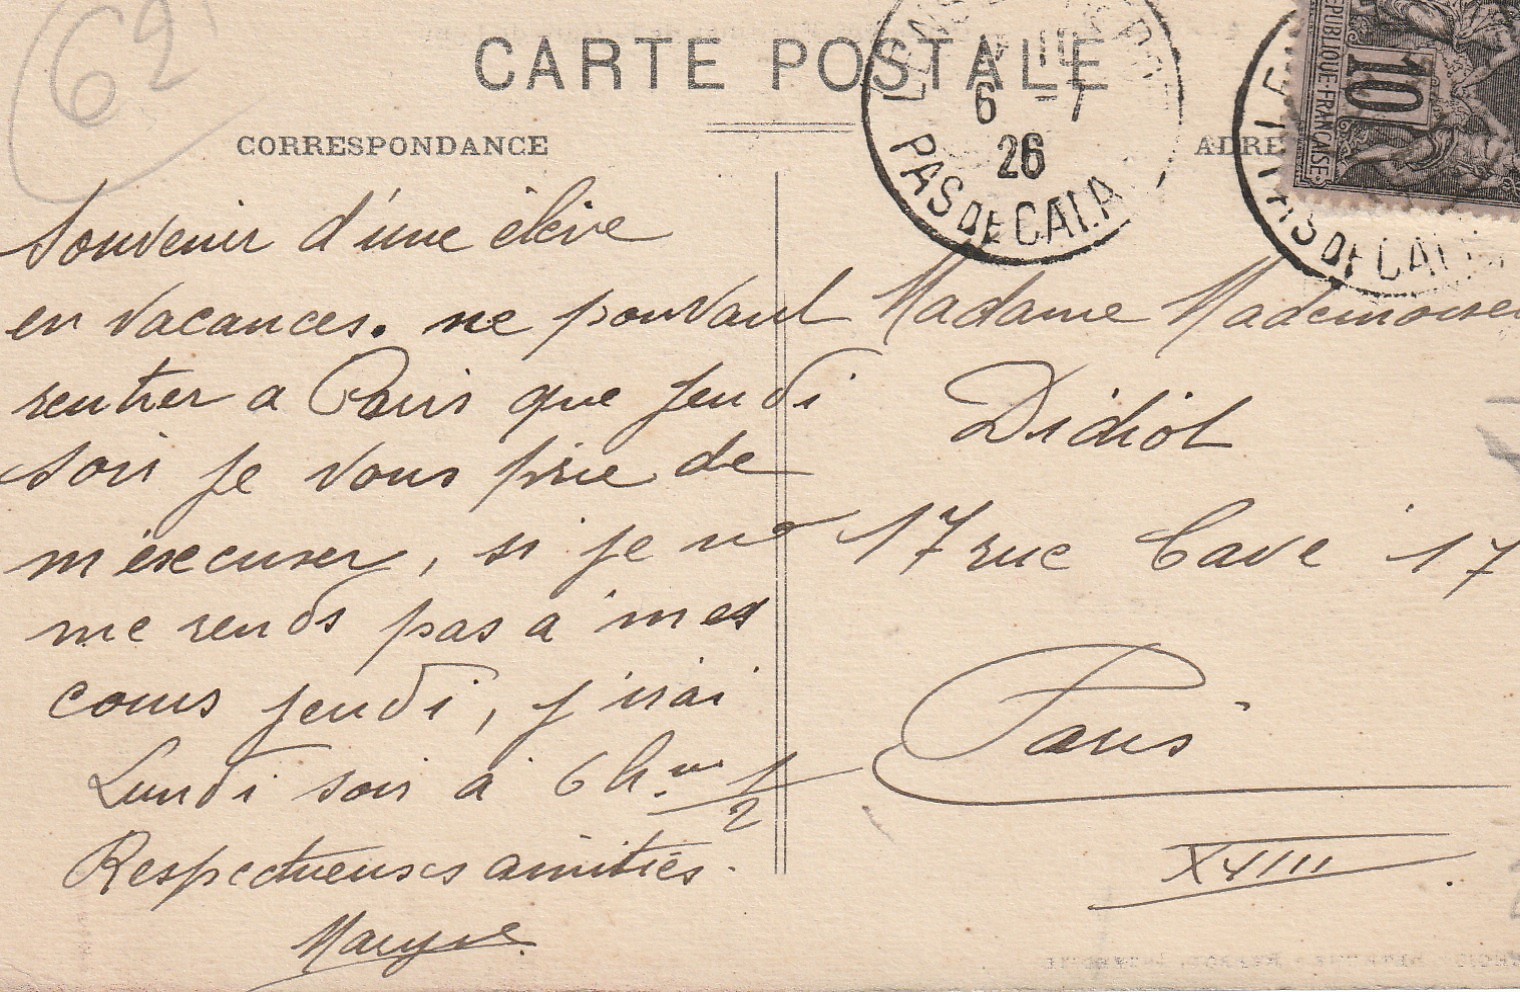 62
CARTE POSTALE
CORRESPONDANCE
ADRE
6 -7
26
PAS DE CALA
PAS DE CALA
10
RÉPUBLIQUE FRANÇAISE
Souvenir d'une élève
en vacances. ne pouvant
rentrer a Paris que jeudi
soir je vous prie de
m'excuser, si je ne
me rends pas à mes
cours jeudi, j'irai
Lundi soir à 6h 1/2
Respectueuses amitiés.
Madame Mademoisel
Didiot
17 rue Cavé 17
Paris
XVIII